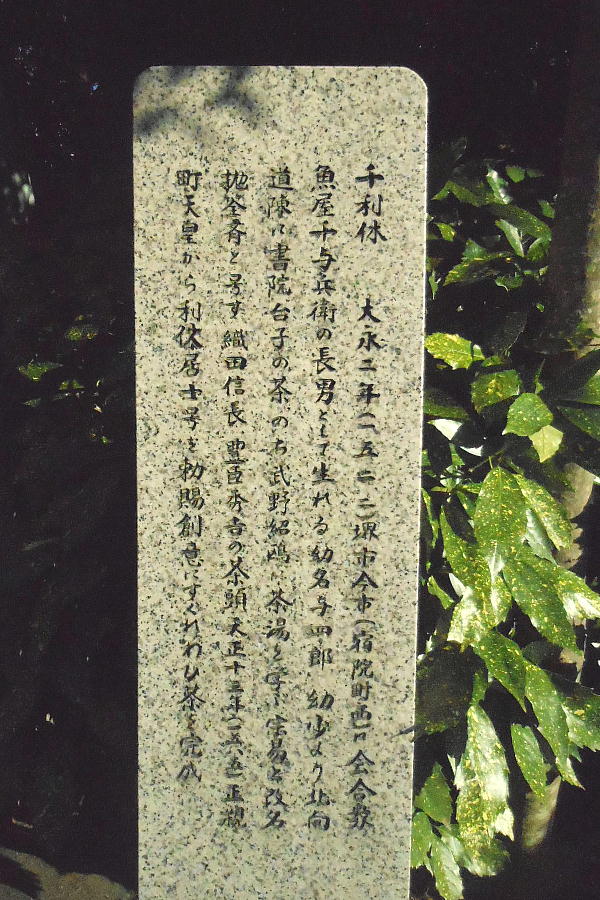 千利休 大永二年(一五二二)堺市今市(宿院町西)口会合教
魚屋千与兵衛の長男として生れる幼名与四郎 幼少より北向
道陳に書院台子の茶のち武野紹鴎に茶湯を学ぶ宗易と改名
抛筌斉と号す 織田信長 豊臣秀吉の茶頭天正十三年(一五八五)正親
町天皇から利休居士号を勅賜創意にすぐれわび茶を完成